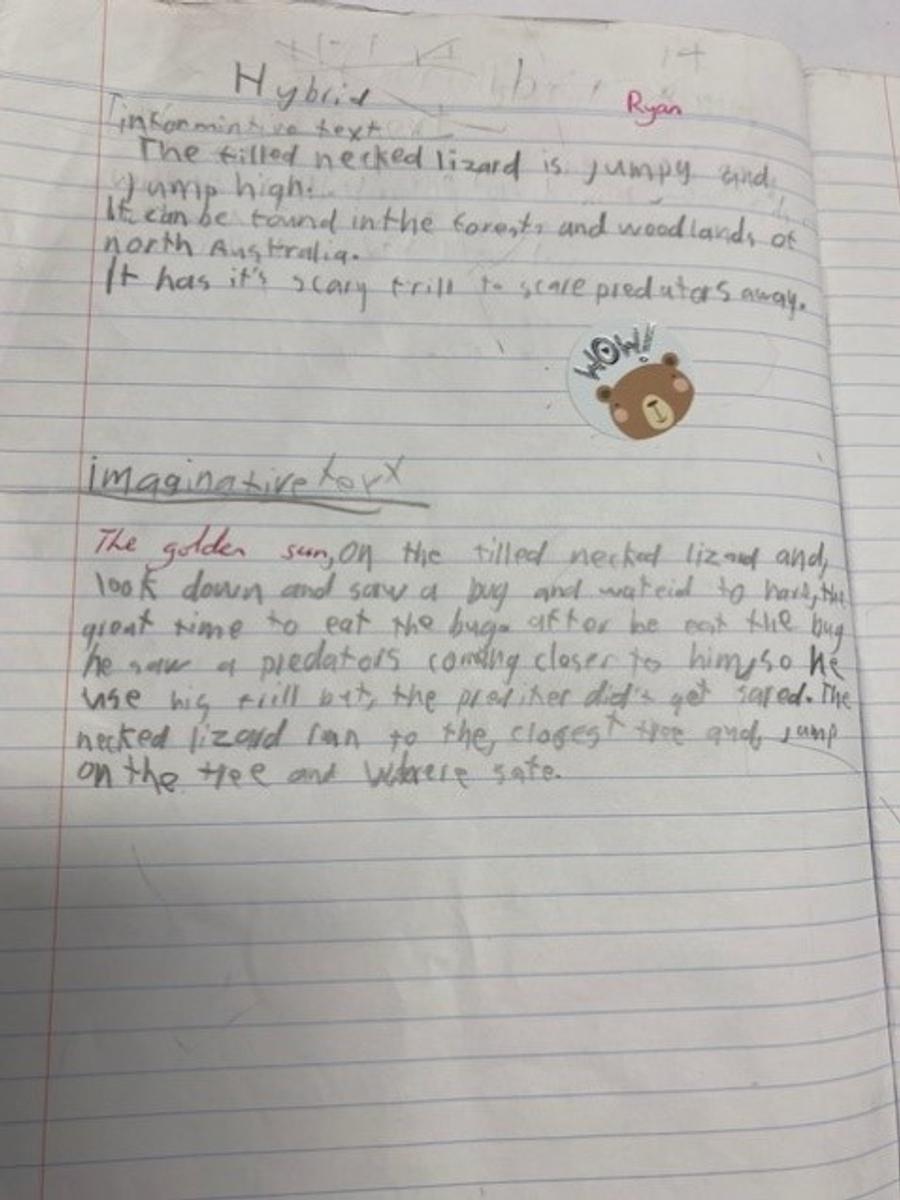 Hybrid
Ryan
informintive text
The filled necked lizard is jumpy and
jump high.
It can be found in the forests and woodlands of
north Australia.
It has it's scary frill to scare predators away.
WOW!
imaginative text
The golden sun, on the filled necked lizard and,
look down and saw a bug and wateid to have, the
great time to eat the bug. after be eat the bug
he saw a predators coming closer to him, so he
use his frill but, the did't get sared. The
necked lizard ran to the, closest tree and, jump
on the tree and safe.